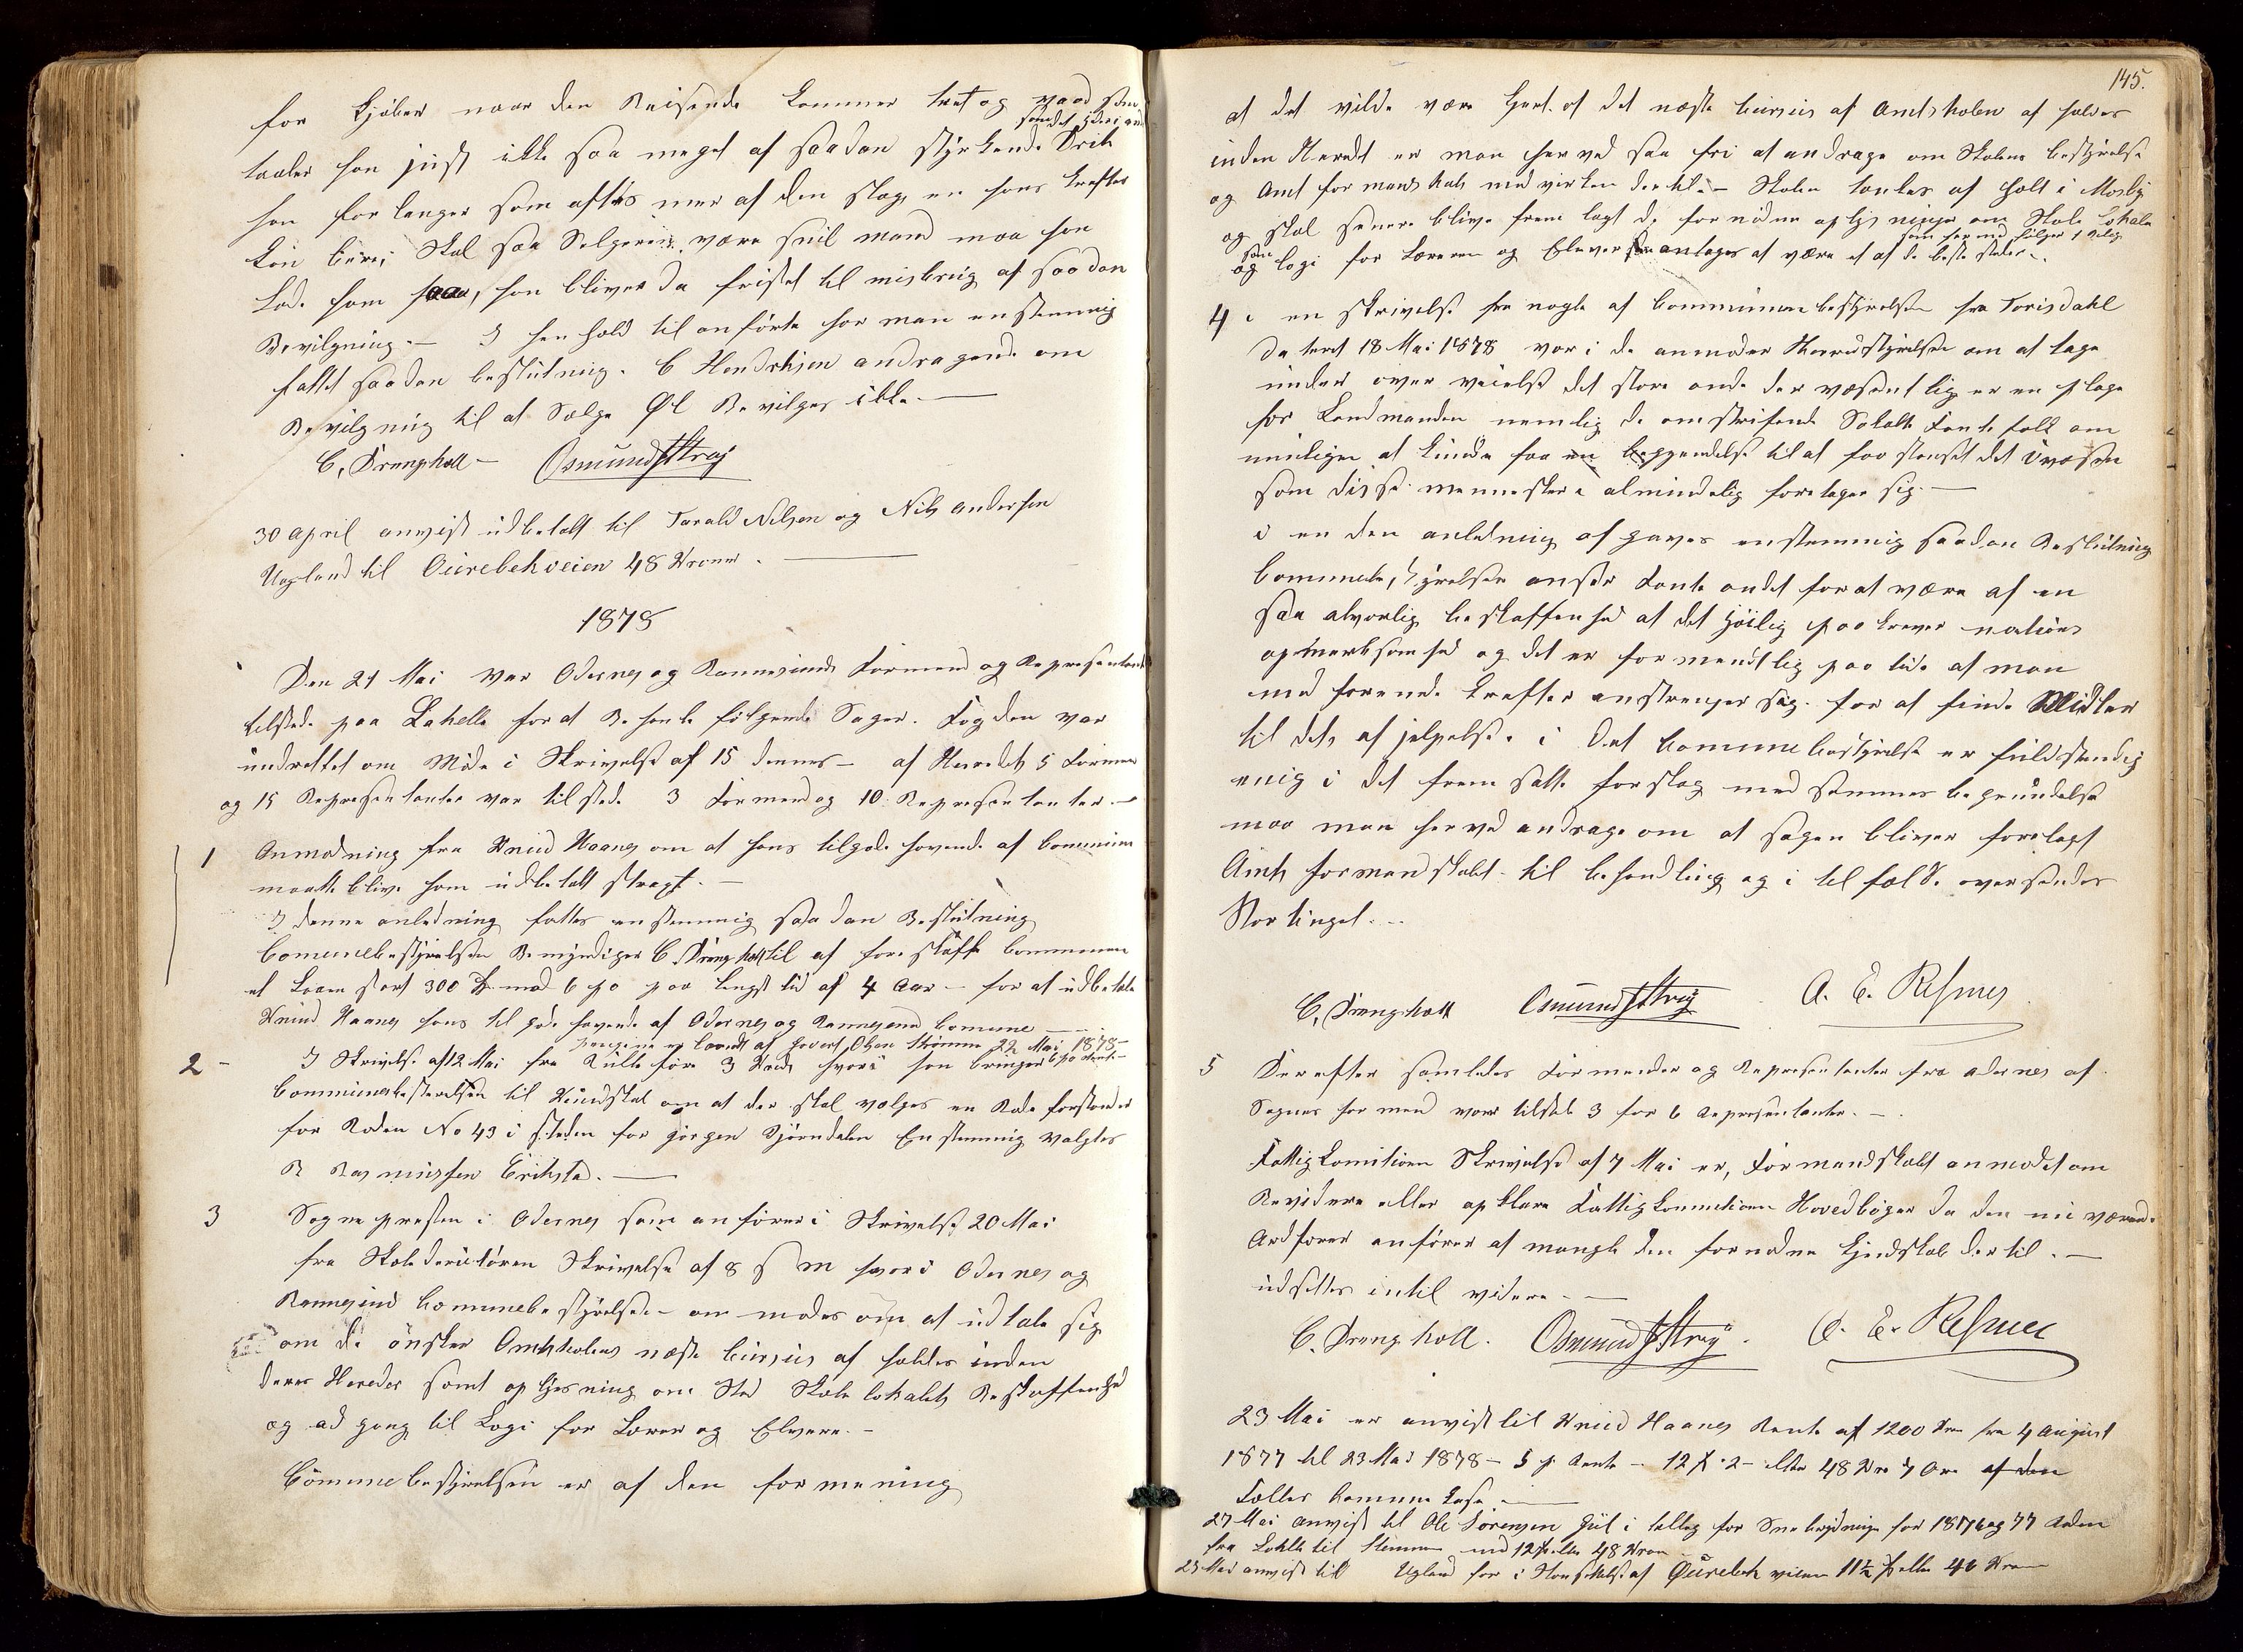 for Kjøber naar den Reisende kommer træt og vaad som
som det jder i an
taaler han just ikke saa meget af saadan styrkende Drik
han forlanger som oftes mer af den slag en hans kræfter
kan bære, skal saa Selgeren være snil mand maa han
lade ham faaa, han bliver da fristet til misbrug af saadan
Bevilgning. — I henhold til anførte har man enstemmig
fattet saadan beslutning. C Hendriksen andragende om
Bevilgning til at Sælge Øl Bevilges ikke. —
C, Drangsholt — Osmund Stray
30 April anvist udbetalt til Tarald Nilsen og Nils Andersen
Ugland til Ourebekveien 48 Kroner. —
1878
Den 21 Mai var Oddernes og Rannesunds Formænd og Repræsentant
tilstede paa Lahelle for at Behandle følgende Sager. Fogden var
undrettet om Møde i Skrivelse af 15 dennes — af Herredets 5 Formæn
og 15 Repræsentanter var tilstede 3 Formænd og 10 Repræsentanter. —
1 Anmodning fra Knud Haanes om at hans tilgodehavende af Communen
maatte blive ham udbetalt straxt. —
I denne anledning fattes enstemmig saadan Beslutning
Comunebestyrelsen Bemyndiger C. Drangsholt til at foreskaffe Communen
et Laan stort 300 Sp mod 6 po paa lengst tid af 4 Aar — for at udbetale
Knud Haanes hans tilgodehavende af Oddernes og Rannesund Comune —
pengene er laandt af Govert Olsen Strømme 22 Mai 1878 —
6 po Rente —
2 — I Skrivelse af 12 Mai fra Rulleføre 3 Kreds hvori han bringer
Communebestyrelsen til Kundskab om at der skal valges en Rodeforstander
for Roden No 43 i steden for Jørgen Bjørndalen Enstemmig valgtes
R Rasmussen Erikstad. —
3 Sognepresten i Oddernes som anfører i Skrivelse 20 Mai
fra Skoledirektøren Skrivelse af 8 s m hvori Oddernes og
Rannesund Comunebestyrelse — anmodes om at udtale sig
om de ønsker Amtskolens næste Cursus at holdes inden
deres Hereder samt oplysning om Sted Skolelokalets Beskaffenhed
og adgang til Logi for Lærer og Elvere. —
Comunebestyrelsen er af den formening
145.
at det vilde være Gavt. at det næste Cursus af Amtskolen at holdes
inden Heredt er man herved saa fri at andrage om Skolens bestyrelse
og Amtformandskabs medvirken dertil. — Skolen tænkes at holt i Mosby
og skal senere blive fremlagt de fornødne oplysninger om Skole Lokale
som herved følger 1 bilag
og logi for Læreren og Elever som antages at være et af de beste steder. —
4. en skrivelse fra nogle af Communebestyrelsen fra Torisdahl
dateret 18 Mai 1878 vor i de anmoder Herredstyrelsen om at tage
under overveielse det store onde der væsentlig er en plage
for Landmanden nemlig de omstreifende Sokalte Fantefolk om
muligen at kunde faa en begyndelse til at faa standset det uvæsen
som disse menneskere almindelig foretager sig. —
i en den anledning afgaves enstemmig saadan Beslutning
Comunebestyrelsen anser Fante ondet for at være af en
saa alvorlig beskaffenhed at det høilig paakrever nations
opmerksomhed og det er formentlig paa tide at man
med forende krefter anstrenger sig. for at finde Midler
til dets afjelpelse. i det Comunebestyrelse er fuldstendig
enig i det fremsatte forslag med sammes begrundelse
maa man herved andrage om at sagen bliver forelagt
Amtsformandskabet til behandling og i tilfælde oversendes
Stortinget. —
C, Drangsholt Osmund Stray A. E. Røsnes
5 Derefter samledes Formænder og Repræsentanter fra Oddernes af
Sognes formænd vare tilsted 3 for 6 Repræsentanter. —
Fattigkomitioen Skrivelse af 7 Mai er, Formandskabet anmodet om
Revidere eller opklare Fattigkommitioen Hovedbøger da den nu værende
Ordfører anfører at mangle den fornødne Kjendskab dertil. —
udsettes indtil videre. —
C. Drangsholt. Osmund Stray. A. E. Røsnes
23 Mai er anvist til Knud Haanes Rente af 1200 Kro fra 4 August
1877 til 23 Mai 1878 — 5 p Rente — 12 Sp 2 — eller 48 Kro 7 Ore af den
Fælles Komune Kase. —
27 Mai anvist til Ole Sørensen Gill i tillæg for Snebrydning for 1876 og 77 Roden
fra Lohlle til Strømme med 12 Sp eller 48 Kron
23 Mai anvist till Ugland for i Standsettelse af Ourebek veien 11½ Sp eller 46 Kron